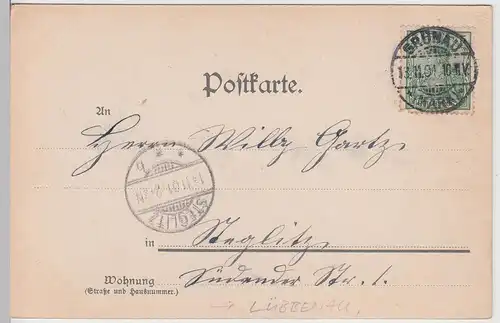 GRÜNAU
13.11.01. 10-11V.
(MARK)
Postkarte.
An
Herrn Willy Gartz
STEGLITZ
13.11.01
in Steglitz
Wohnung Südender Str. 1.
(Straße und Hausnummer.)
→ LÜBBENAU.